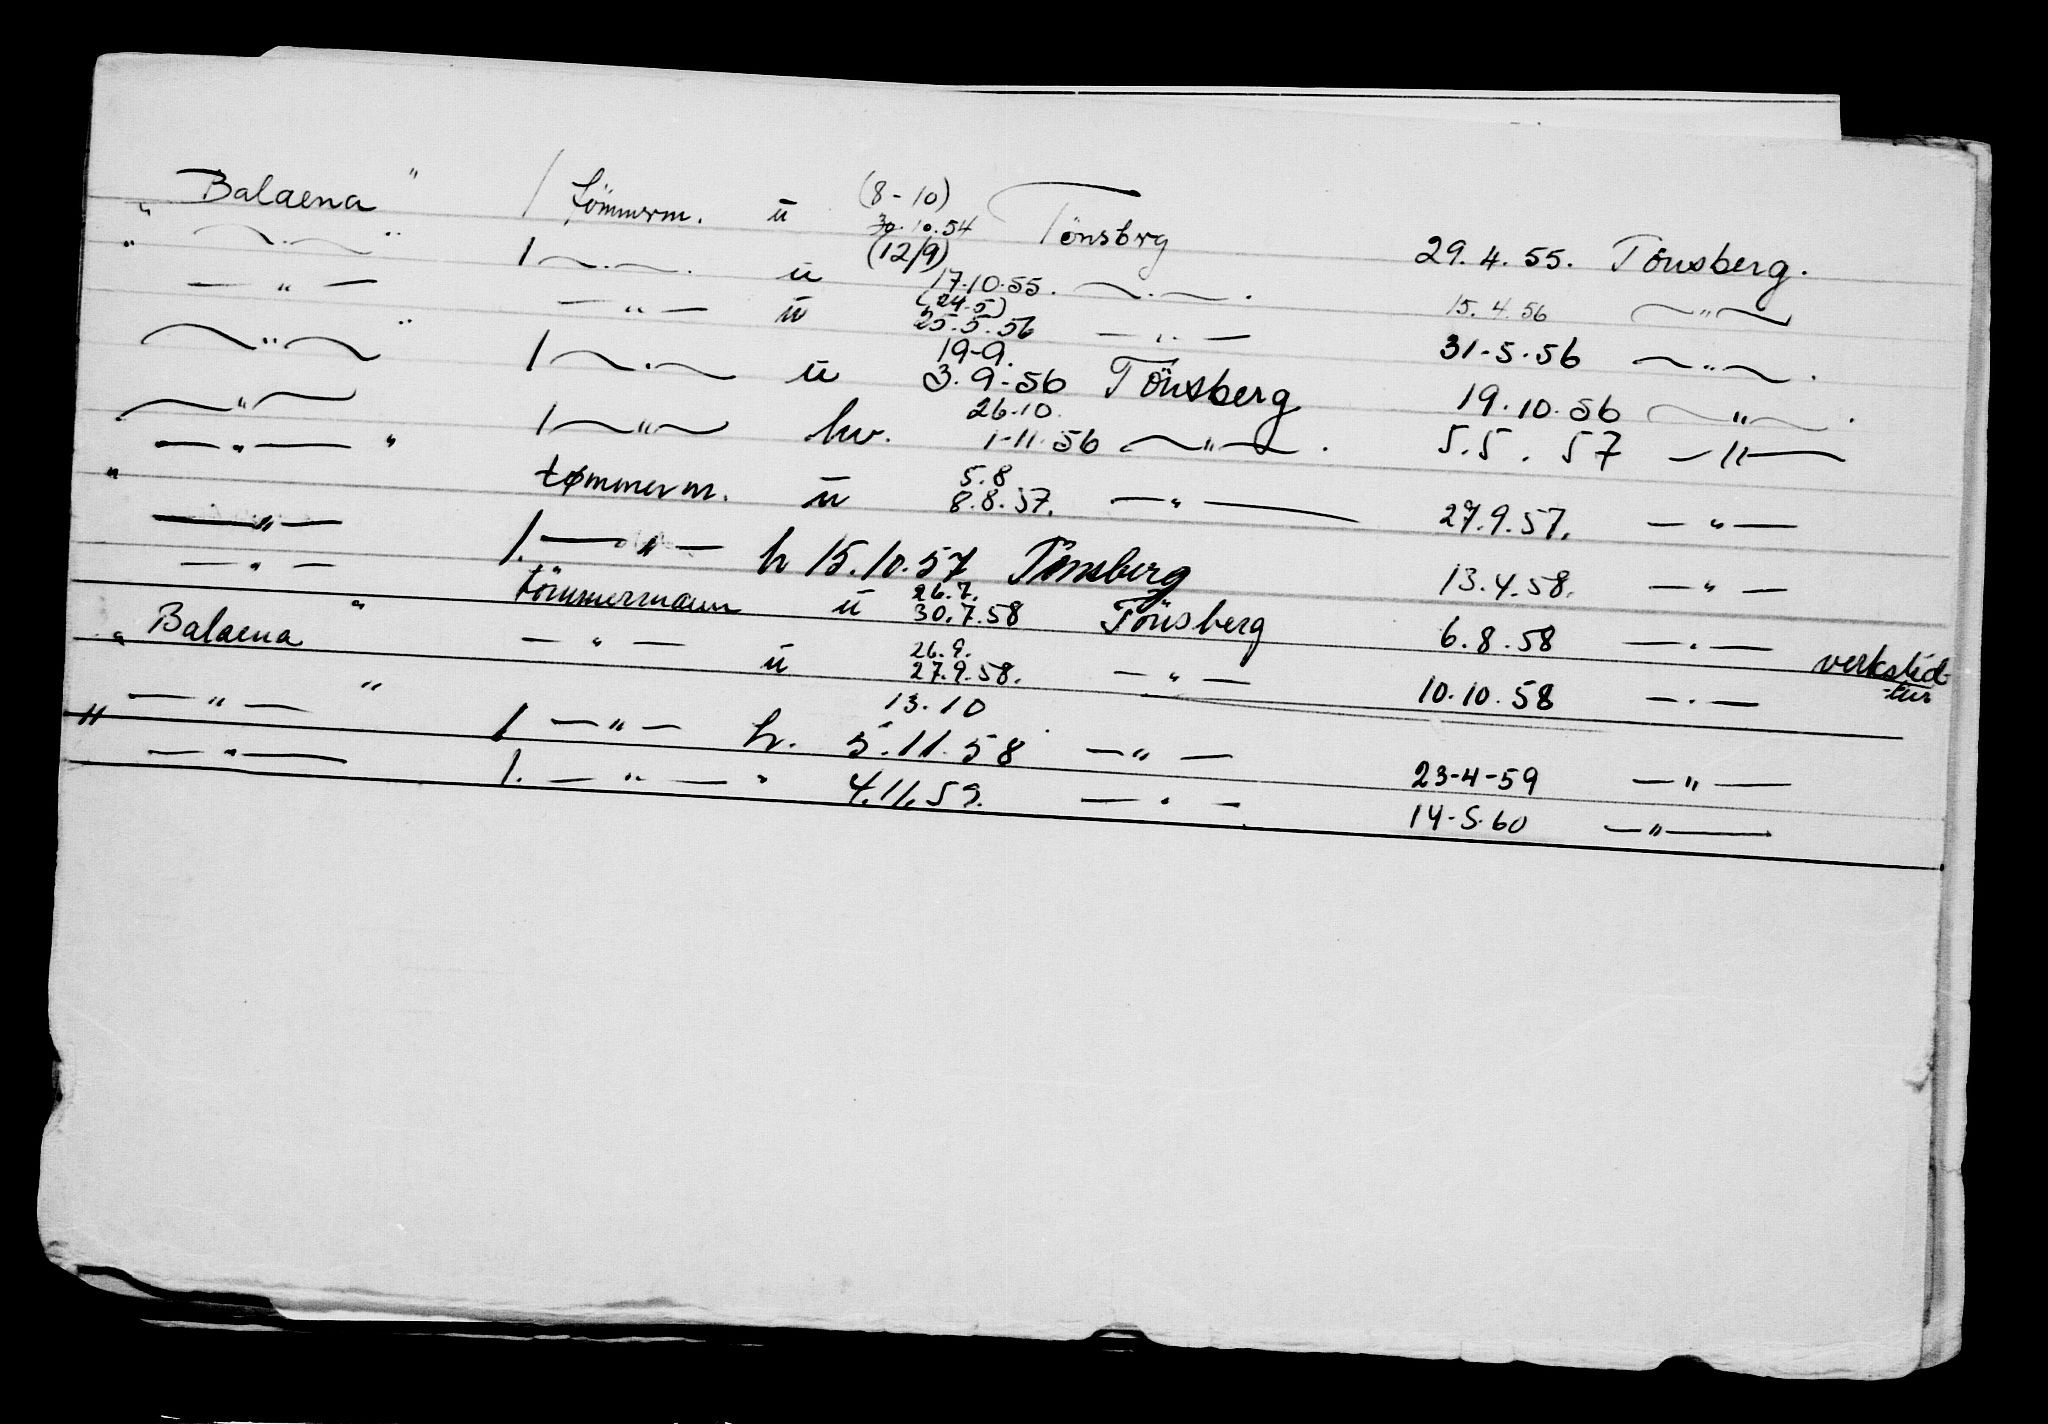 "Balaena" / tömmerm. u (8-10) 30.10.54 Tönsbrg 29.4.55. Tönsberg.
" —.— " / —.— u (12/9) 17.10.55. —.—. 15.4.56 —"—
—"— —"— u (24.5) 25.5.56 —"— 31-5.56 —"—.
—"— " / —.— u 19-9. 3.9-56 Tönsberg 19.10.56 —"—.
—"— / —"— hv. 26-10. 1-11.56 —"—. 5.5.57 —"—
—"— " tømmerm. u 5.8 8.8.57. —"— 27.9.57. —"—
" —"— /. —"— h 15.10.57 Tönsberg 13.4.58. —"—
—"— tömmermann u 26.7. 30.7.58 Tönsberg 6.8.58 —.— verksted-tur
"Balaena" —"— u 26.9. 27.9.58. —"— 10.10.58 —.—
—"— " / —"— h. 13.10 5.11.58 —"— 23-4-59 —"—
" —"— /. —"— " 4.11.59. —.— 14-5.60 —"—